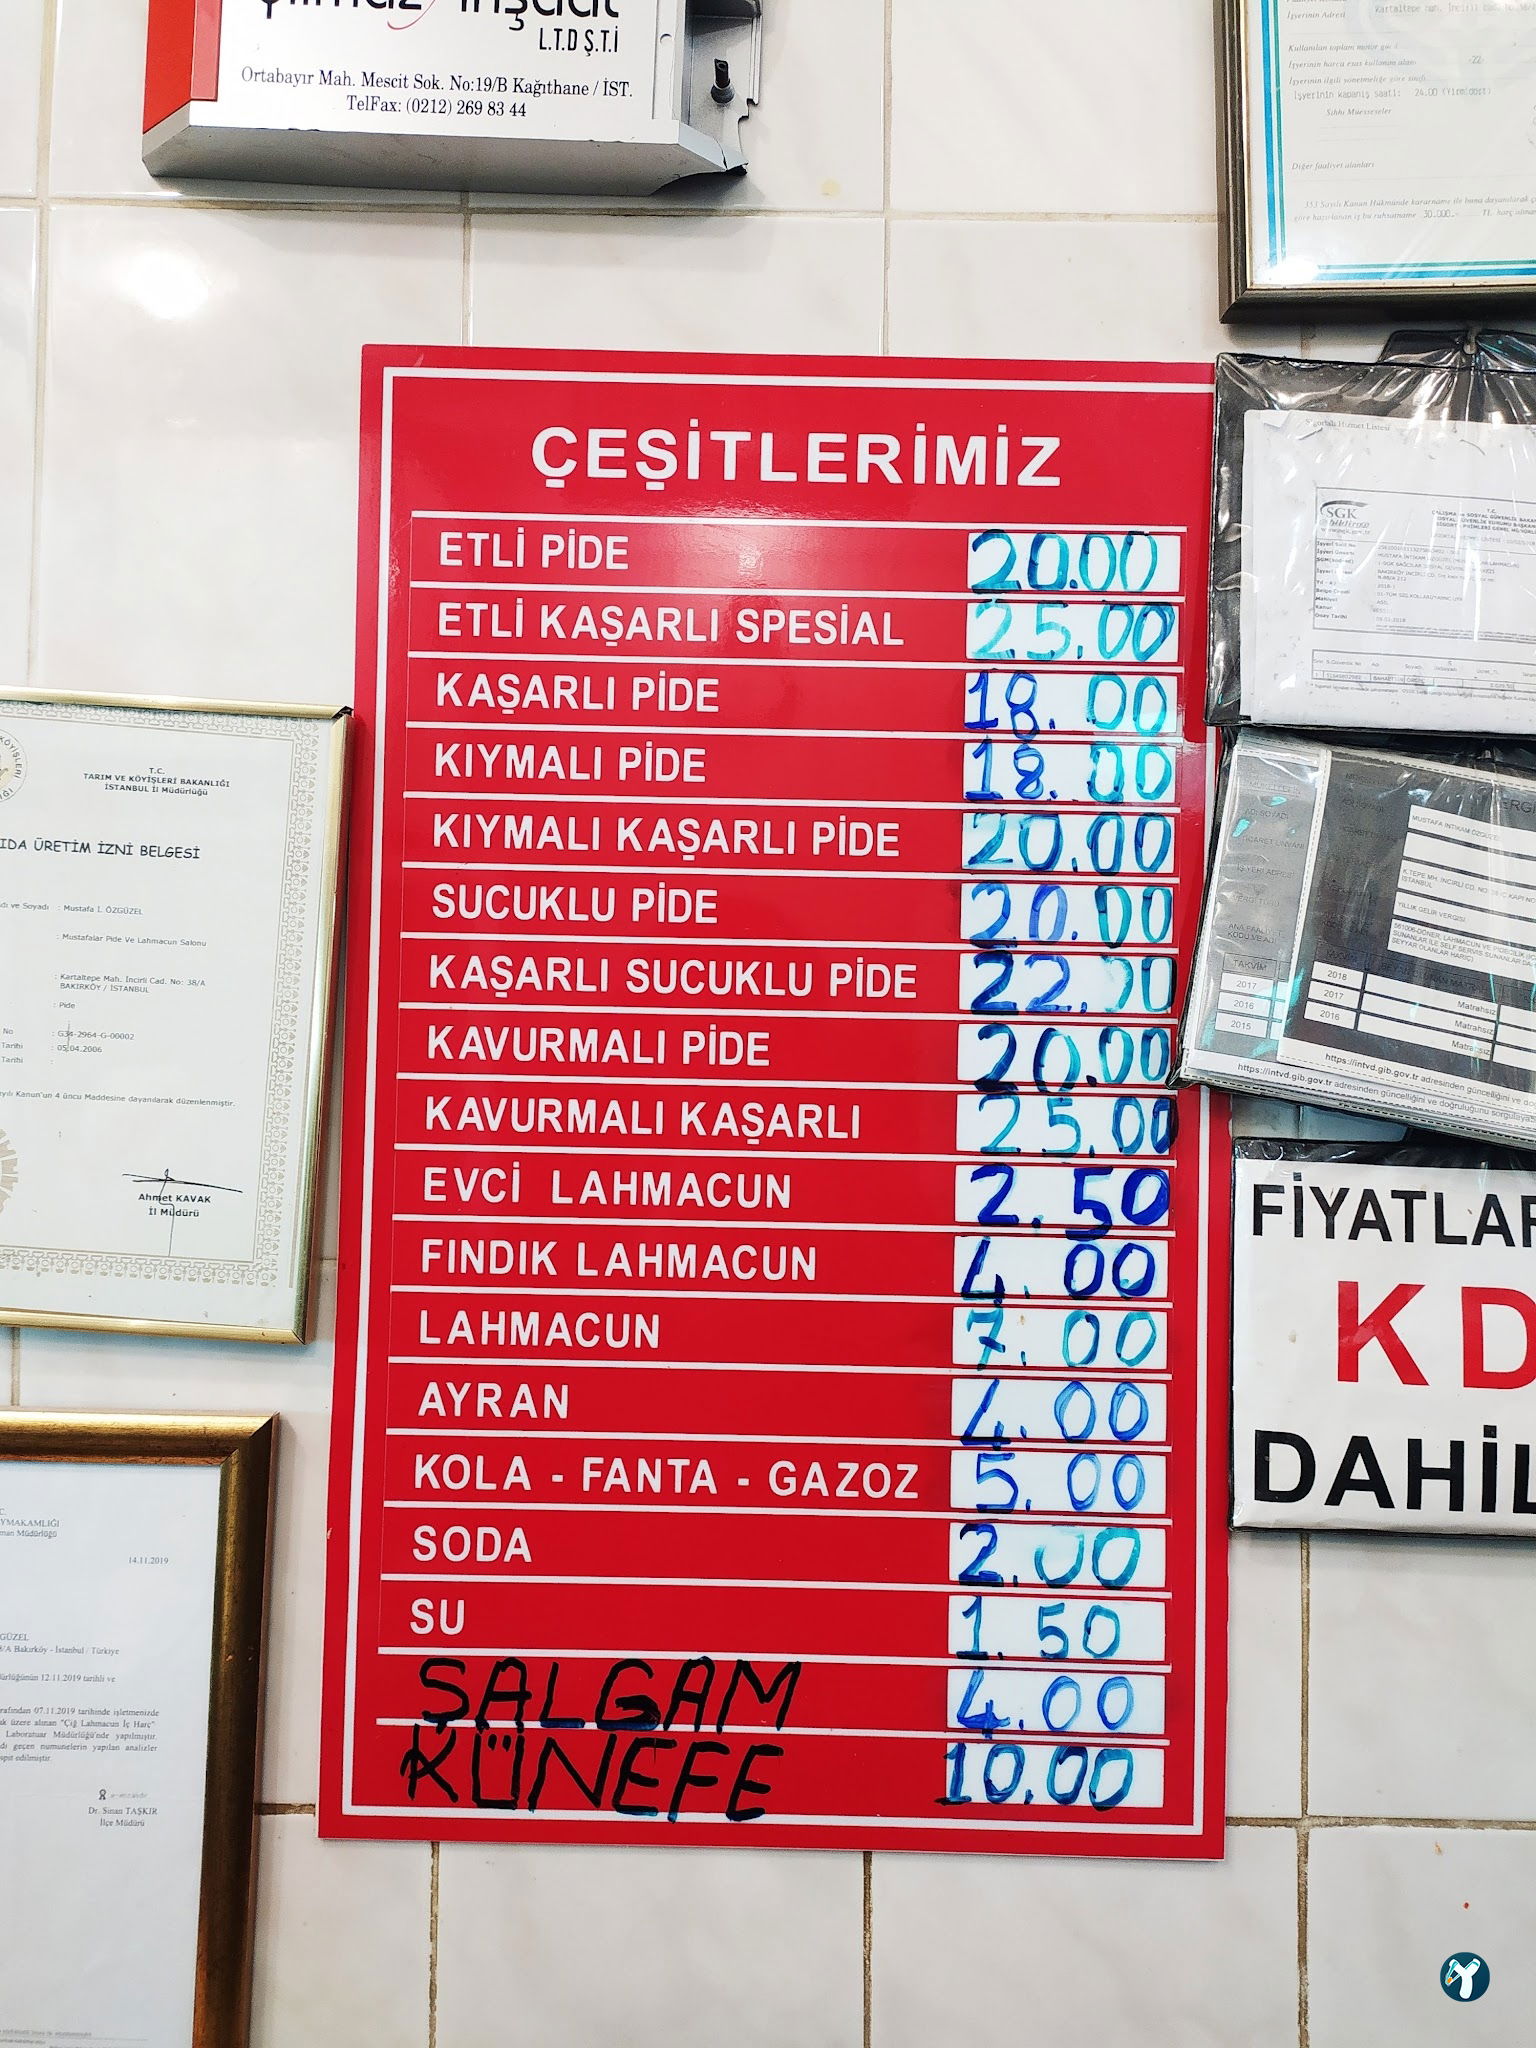 L.T.D Ş.T.İ
Ortabayır Mah. Mescit Sok. No:19/B Kağıthane / İST.
TelFax: (0212) 269 83 44
İşyerinin Adresi
Kullanılan toplam motor gücü
İşyerinin harca esas kullanım alanı -22-
İşyerinin kapanış saati: 24.00 (Yirmidört)
Sıhhi Müesseseler
Diğer faaliyet alanları
ÇEŞİTLERİMİZ
ETLİ PİDE 20.00
ETLİ KAŞARLI SPESİAL 25.00
KAŞARLI PİDE 18.00
KIYMALI PİDE 18.00
KIYMALI KAŞARLI PİDE 20.00
SUCUKLU PİDE 20.00
KAŞARLI SUCUKLU PİDE 22.00
KAVURMALI PİDE 20.00
KAVURMALI KAŞARLI 25.00
EVCİ LAHMACUN 2.50
FINDIK LAHMACUN 4.00
LAHMACUN 7.00
AYRAN 4.00
KOLA - FANTA - GAZOZ 5.00
SODA 2.00
SU 1.50
ŞALGAM 4.00
KÜNEFE 10.00
T.C.
TARIM VE KÖYİŞLERİ BAKANLIĞI
İSTANBUL İl Müdürlüğü
IDA ÜRETİM İZNİ BELGESİ
dı ve Soyadı : Mustafa İ. ÖZGÜZEL
: Mustafalar Pide Ve Lahmacun Salonu
: Kartaltepe Mah. İncirli Cad. No: 38/A
BAKIRKÖY / İSTANBUL
: Pide
No : G34-2964-G-00002
Tarihi : 05.04.2006
Tarihi :
yılı Kanun'un 4 üncü Maddesine dayanılarak düzenlenmiştir.
Ahmet KAVAK
İl Müdürü
YMAKAMLIĞI
14.11.2019
GÜZEL
/A Bakırköy - İstanbul / Türkiye
dürlüğünün 12.11.2019 tarihli ve
rafından 07.11.2019 tarihinde işletmenizde
k üzere alınan "Çiğ Lahmacun İç Harç"
Laboratuar Müdürlüğü'nde yapılmıştır.
dı geçen numunelerin yapılan analizler
spit edilmiştir.
Dr. Sinan TAŞKIR
İlçe Müdürü
Sigortalı Hizmet Listesi
SGK
T.C.
MUSTAFA İNTİKAM ÖZGÜZEL
YILLIK GELİR VERGİSİ
TAKVİM
2017
2016
2015
2018
2017
2016
Matrahsız
Matrahsız
Matrahsız
https://intvd.gib.gov.tr adresinden
FİYATLAR
KD
DAHİL